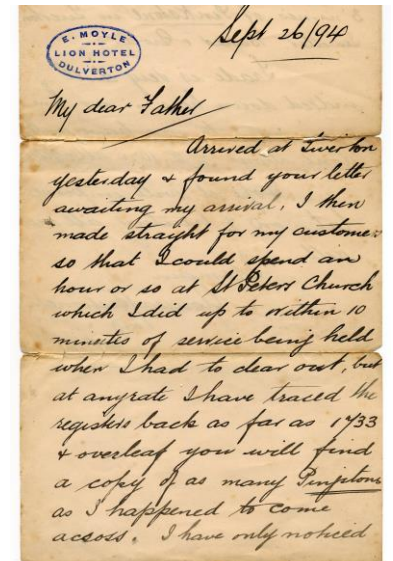 E. MOYLE
LION HOTEL
DULVERTON
Sept 26/94
My dear Father
Arrived at Tiverton
yesterday & found your letter
awaiting my arrival. I then
made straight for my customers
so that I could spend an
hour or so at St Peters Church
which I did up to within 10
minutes of service being held
when I had to clear out, but
at anyrate I have traced the
registers back as far as 1733
& overleaf you will find
a copy of as many Pinpstons
as I happened to come
across. I have only noticed